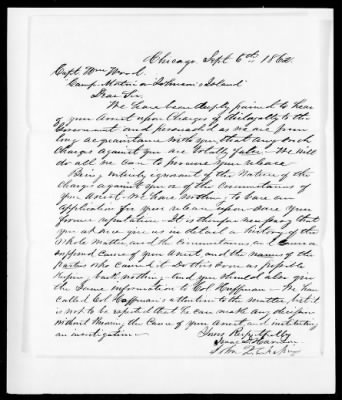 Chicago Sept 6th 1862.
Capt. Wm Wood.
Camp Johnson's Island
Dear Sir
We have been deeply pained to hear
your Arrest upon Charges of disloyalty to the
Government and persuaded as we are from
long acquaintance with you that any such
Charges against you are totally false. We will
do all we can to procure your release
Being entirely ignorant of the Nature of the
Charges against you or of the Circumstances of
your Arrest. We have nothing to base an
application for your release upon save your
former reputation. It is therefore necessary that
you at once give us in detail a history of the
whole matter and the Circumstances and
supposed Cause of your Arrest and the names of the
parties who caused it. Do this as soon as possible
before, but nothing. And you should also give
the same information to Col Hoffman. We have
called Col Hoffman's attention to the matter, but it
is not to be expected that he can make any decision
without knowing the Cause of your Arrest and instituting
an investigation.
Yours Respectfully
Isaac
John